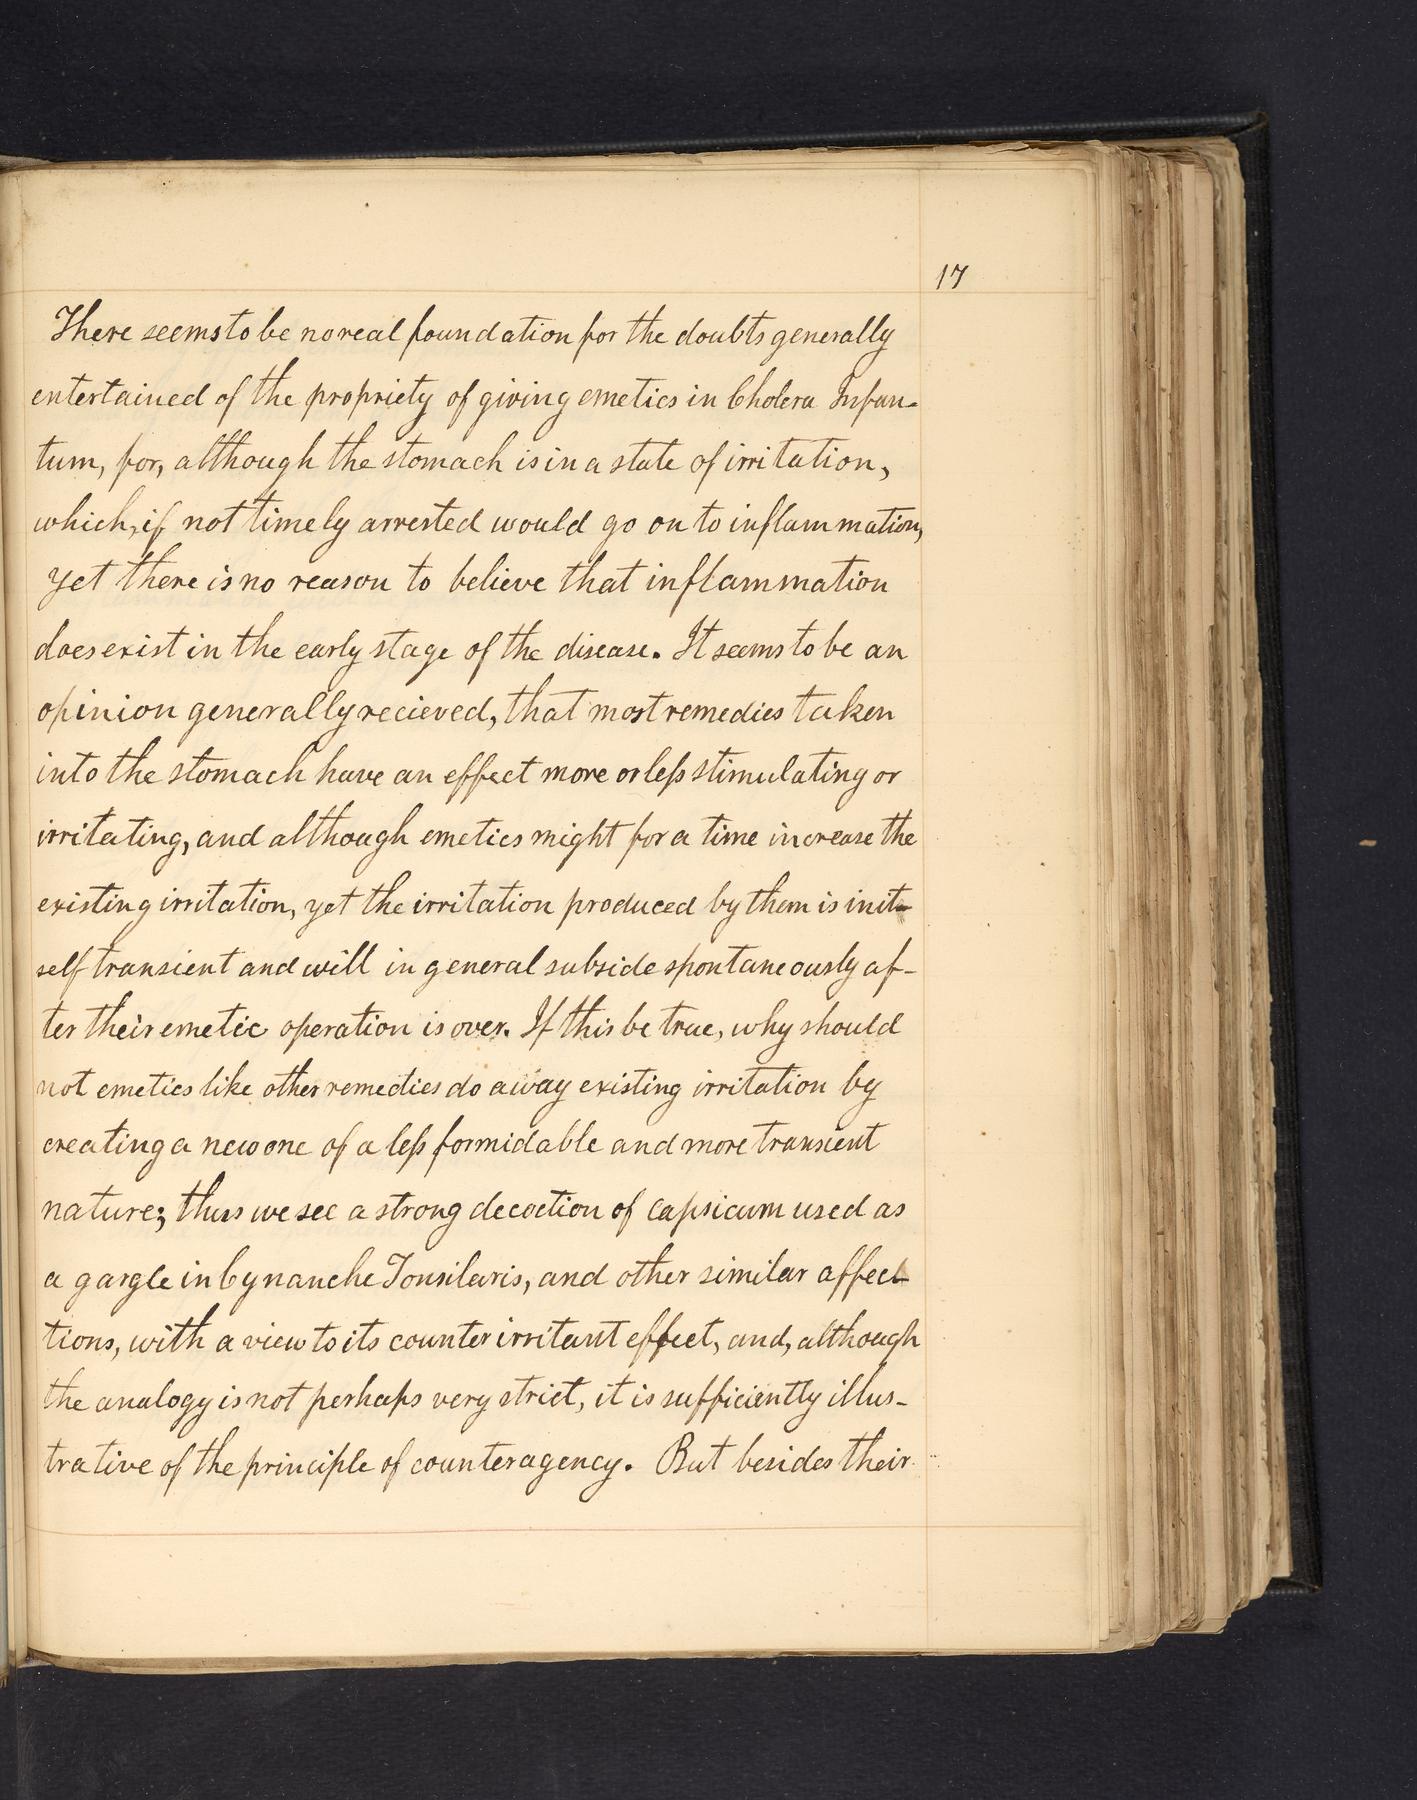 17
There seems to be no real foundation for the doubts generally
entertained of the propriety of giving emetics in Cholera Infan-
tum, for, although the stomach is in a state of irritation,
which, if not timely arrested would go on to inflammation,
yet there is no reason to believe that inflammation
does exist in the early stage of the disease. It seems to be an
opinion generally recieved, that most remedies taken
into the stomach have an effect more or leſs stimulating or
irritating, and although emetics might for a time increase the
existing irritation, yet the irritation produced by them is in it-
self transient and will in general subside spontaneously af-
ter their emetic operation is over. If this be true, why should
not emetics like other remedies do away existing irritation by
creating a new one of a leſs formidable and more transient
nature; thus we see a strong decoction of capsicum used as
a gargle in Cynanche Tonsilaris, and other similar affec-
tions, with a view to its counter irritant effect, and, although
the analogy is not perhaps very strict, it is sufficiently illus-
trative of the principle of counteragency. But besides their